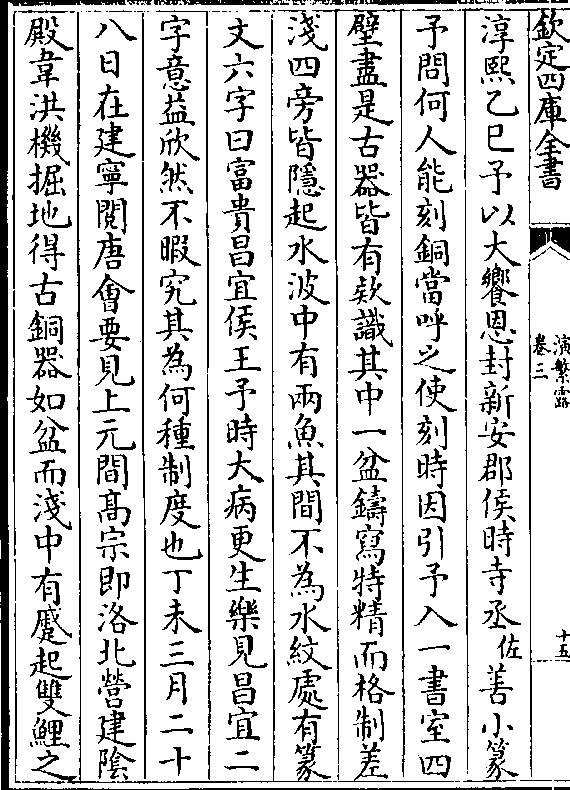 欽定四庫全書
演繁露
卷三
十五
淳熙乙巳予以大饗恩封新安郡侯時寺丞佐善小篆
予問何人能刻銅當呼之使刻時因引予入一書室四
壁盡是古器皆有欵識其中一盆鑄寫特精而格制差
淺四旁皆隱起水波中有兩魚其間不為水紋處有篆
文六字曰富貴昌宜侯王予時大病更生樂見昌宜二
字意益欣然不暇究其為何種制度也丁未三月二十
八日在建寧閲唐會要見上元間髙宗即洛北營建陰
殿韋洪機掘地得古銅器如盆而淺中有蹙起雙鯉之